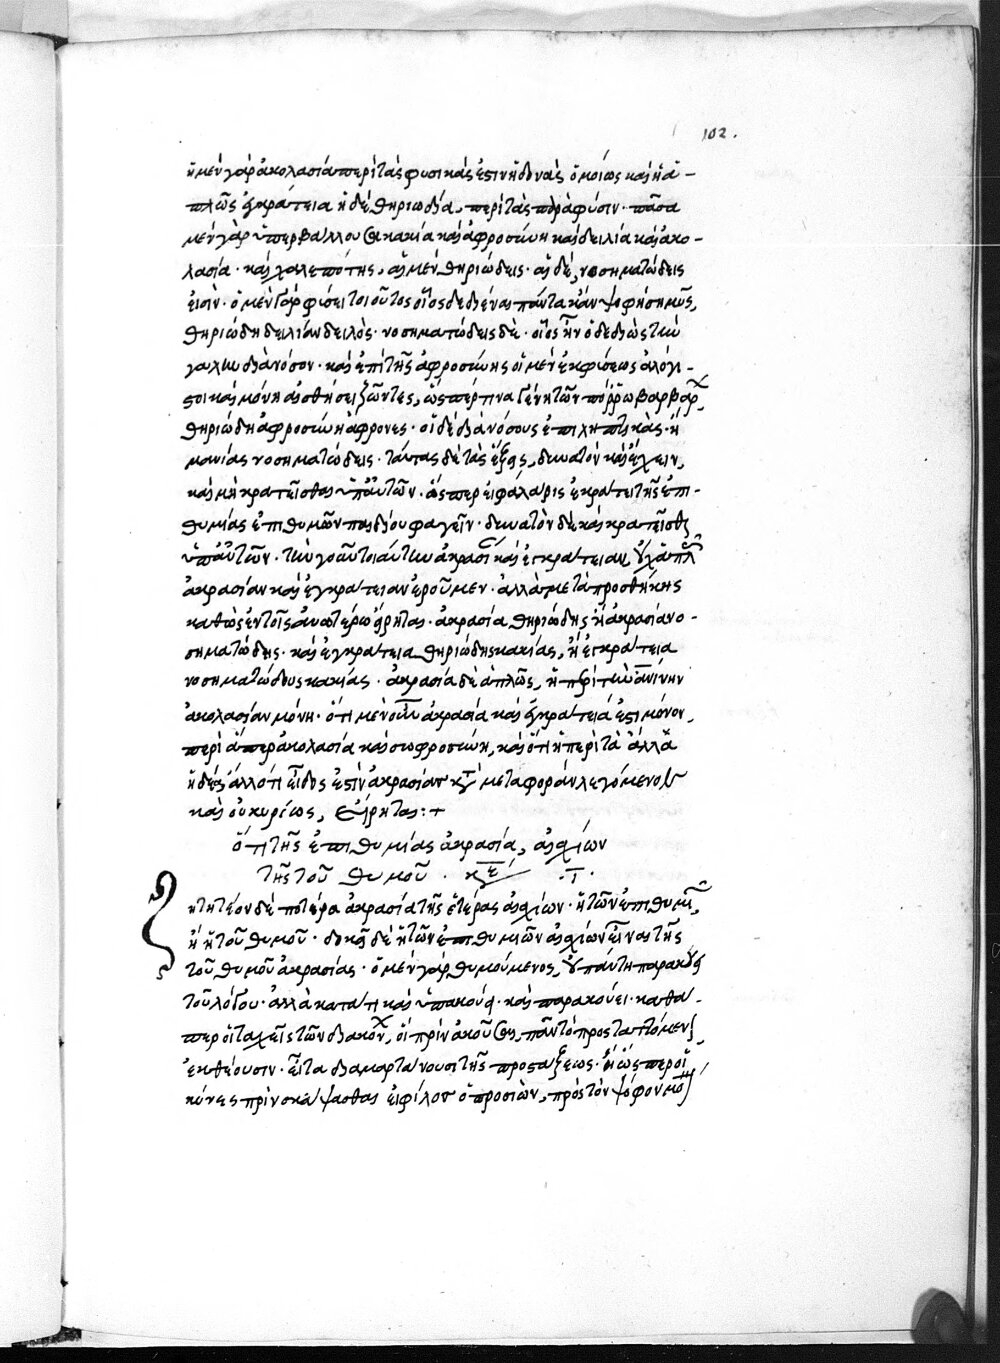 102.
ἡ μὲν γὰρ ἀκολασία περὶ τὰς φυσικάς ἐστιν ἡδονάς ὁμοίως καὶ ἡ ἁ-
πλῶς ἐγκράτεια ἡ δὲ θηριωδία, περὶ τὰς παρὰ φύσιν· πᾶσα
μὲν γὰρ ὑπερβάλλουσα κακία καὶ ἀφροσύνη καὶ δειλία καὶ ἀκο-
λασία· καὶ χαλεπότης, αἱ μὲν θηριώδεις· αἱ δὲ, νοσηματώδεις
εἰσίν· ὁ μὲν γὰρ φύσει τοιοῦτος οἷος δεδιέναι πάντα κἂν ψοφήσῃ μῦς,
θηριώδη δειλίαν δειλός· νοσηματώδεις δὲ· οἷος ἦν ὁ δεδιὼς τὴν
γαλῆν διὰ νόσον· καὶ ἐπὶ τῆς ἀφροσύνης οἱ μὲν ἐκ φύσεως ἀλόγι-
στοι καὶ μόνῃ αἰσθήσει ζῶντες, ὥσπερ τινα γένη τῶν πόρρω βαρβάρ
θηριώδη ἀφροσύνη ἄφρονες· οἱ δὲ διὰ νόσους ἐπιληπτικὰς· ἢ
μανίας νοσηματώδεις· ταύτας δὲ τὰς ἕξεις, δυνατὸν καὶ ἔχειν,
καὶ μὴ κρατεῖσθαι ὑπ' αὐτῶν· ὥσπερ εἰ φάλαρις ἐκράτει τῆς ἐπι-
θυμίας ἐπιθυμῶν παιδίου φαγεῖν· δυνατὸν δὲ καὶ κρατεῖσθαι
ὑπ' αὐτῶν· τὴν τοιαύτην ἀκρασί καὶ ἐγκράτειαν, οὐχ ἁπλ
ἀκρασίαν καὶ ἐγκράτειαν ἐροῦμεν· ἀλλὰ μετὰ προσθήκης
καθὼς ἐν τοῖς ἀνωτέρω εἴρηται· ἀκρασία θηριώδης ἢ ἀκρασία νο-
σηματώδης· καὶ ἐγκράτεια θηριώδης κακίας, ἢ ἐγκράτεια
νοσηματώδους κακίας· ἀκρασία δὲ ἁπλῶς, ἡ περὶ τὴν ἀνθρωπίνην
ἀκολασίαν μόνη· ὅτι μὲν οὖν ἀκρασία καὶ ἐγκράτειά ἐστι μόνον,
περὶ ἅπερ ἀκολασία καὶ σωφροσύνη, καὶ ὅτι ἡ περὶ τὰ ἄλλα
ἡδέα ἄλλό τι εἶδος ἐστὶν ἀκρασίας κατὰ μεταφορὰν λεγόμενον
καὶ οὐ κυρίως, εἴρηται:+
ὅτι τῆς ἐπιθυμίας ἀκρασία, αἰσχίων
τῆς τοῦ θυμοῦ.
ητητέον δὲ ποτέρα ἀκρασία τῆς ἑτέρας αἰσχίων· ἡ τῶν ἐπιθυμι,
ἢ ἡ τοῦ θυμοῦ· δοκεῖ δὲ ἡ τῶν ἐπιθυμιῶν αἰσχίων εἶναι τῆς
τοῦ θυμοῦ ἀκρασίας· ὁ μὲν γὰρ θυμούμενος, οὐ πάντη παρακούει
τοῦ λόγου· ἀλλὰ κατά τι καὶ ὑπακούει· καὶ παρακούει· καθά-
περ οἱ ταχεῖς τῶν διακόν, οἳ πρὶν ἀκοῦσαι, πᾶν τὸ προσταττόμεν,
ἐκθέουσιν· εἶτα διαμαρτάνουσι τῆς προστάξεως· ἢ ὥσπερ οἱ
κύνες πρὶν σκέψασθαι εἰ φίλος ὁ προσιὼν, πρὸς τὸν ψόφον μόνον